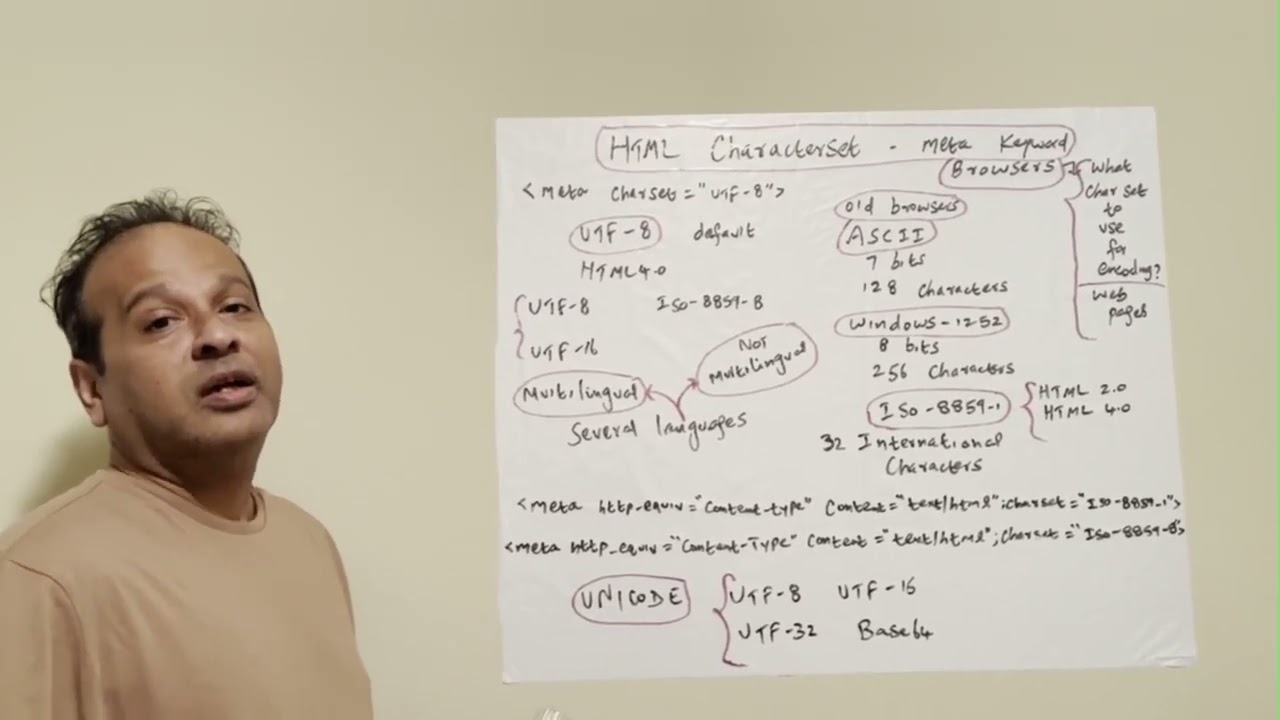 HTML Characterset - Meta Keyword
<meta charset="UTF-8">
UTF-8 default
HTML4.0
UTF-8 ISO-8859-8
UTF-16
Multilingual
NOT
Multilingual
Several languages
Browsers
What
Char set
to
use
for
encoding?
Web
pages
old browsers
ASCII
7 bits
128 characters
Windows-1252
8 bits
256 characters
ISO-8859-1
HTML 2.0
HTML 4.0
32 International
Characters
<meta http-equiv="Content-type" Content="text/html";charset="ISO-8859-1">
<meta http_equiv="Content-Type" Content="text/html";Charset="ISO-8859-8">
UNICODE
UTF-8 UTF-16
UTF-32 Base64